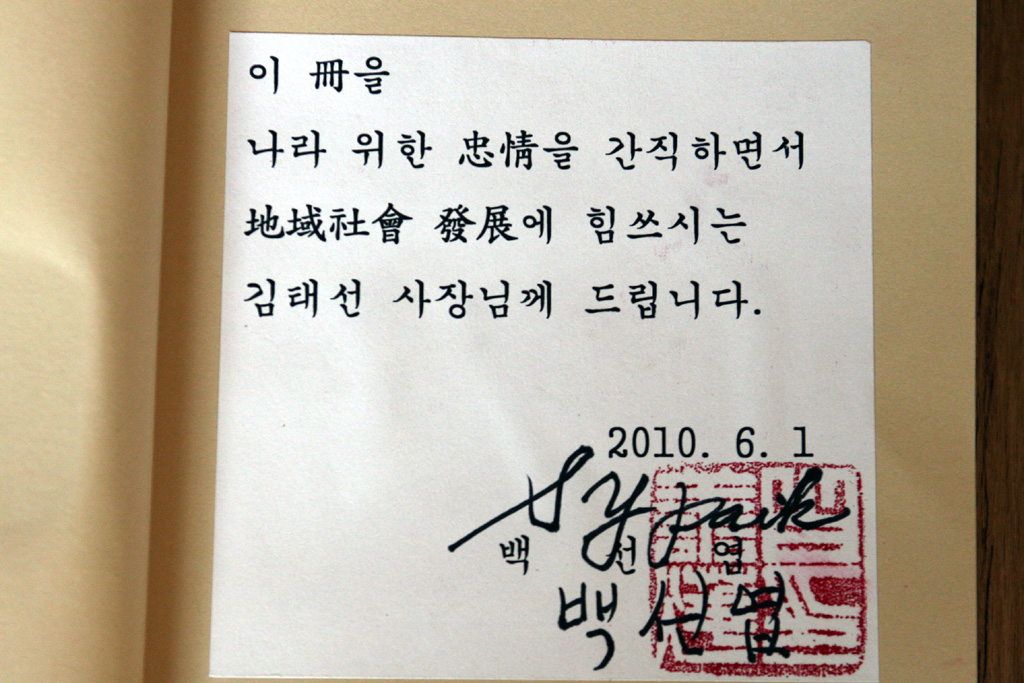 이 冊을
나라 위한 忠情을 간직하면서
地域社會 發展에 힘쓰시는
김태선 사장님께 드립니다.
2010. 6. 1
S y Paik
백 선 엽
백선엽